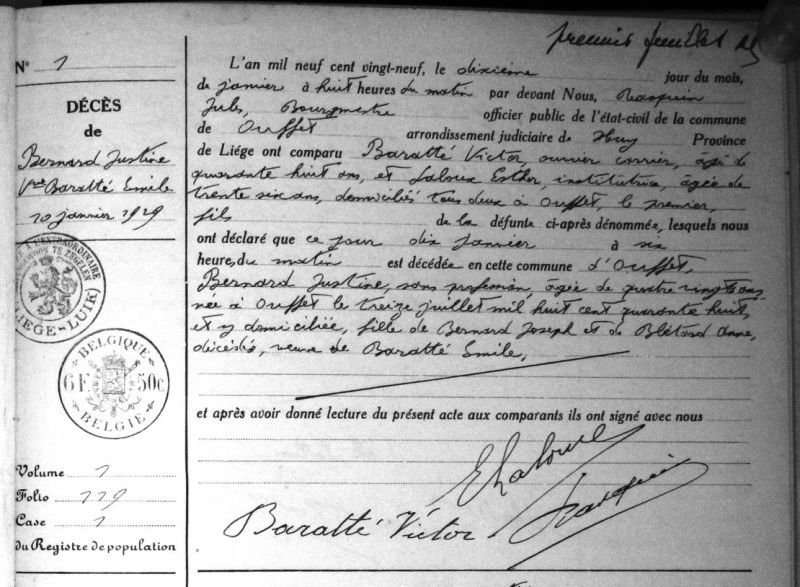 premier feuillet
N° 1
DÉCÈS
de
Bernard Justine
Vve Baratté Emile
10 janvier 1929
À L'EXTRAORDINAIRE
(LIÈGE-LUIK)
BELGIQUE
6 F. 50c
BELGIE
Volume 1
Folio 119
Case 1
du Registre de population
L'an mil neuf cent vingt-neuf, le dixième jour du mois,
de janvier à huit heures du matin par devant Nous, Rasquin
Jules, Bourgmestre officier public de l'état-civil de la commune
de Ouffet arrondissement judiciaire de Huy Province
de Liége ont comparu Baratté Victor, ouvrier carrier, âgé de
quarante huit ans, et Laloux Esther, institutrice, âgée de
trente six ans, domiciliés tous deux à Ouffet, le premier,
fils de la défunte ci-après dénommée, lesquels nous
ont déclaré que ce jour dix janvier à six
heures, du matin est décédée en cette commune d'Ouffet,
Bernard Justine, sans profession, âgée de quatre vingts ans,
née à Ouffet le treize juillet mil huit cent quarante huit,
et y domiciliée, fille de Bernard Joseph et de Blétard Anne,
décédés, veuve de Baratté Emile,
et après avoir donné lecture du présent acte aux comparants ils ont signé avec nous
E Laloux
Rasquin
Baratté Victor